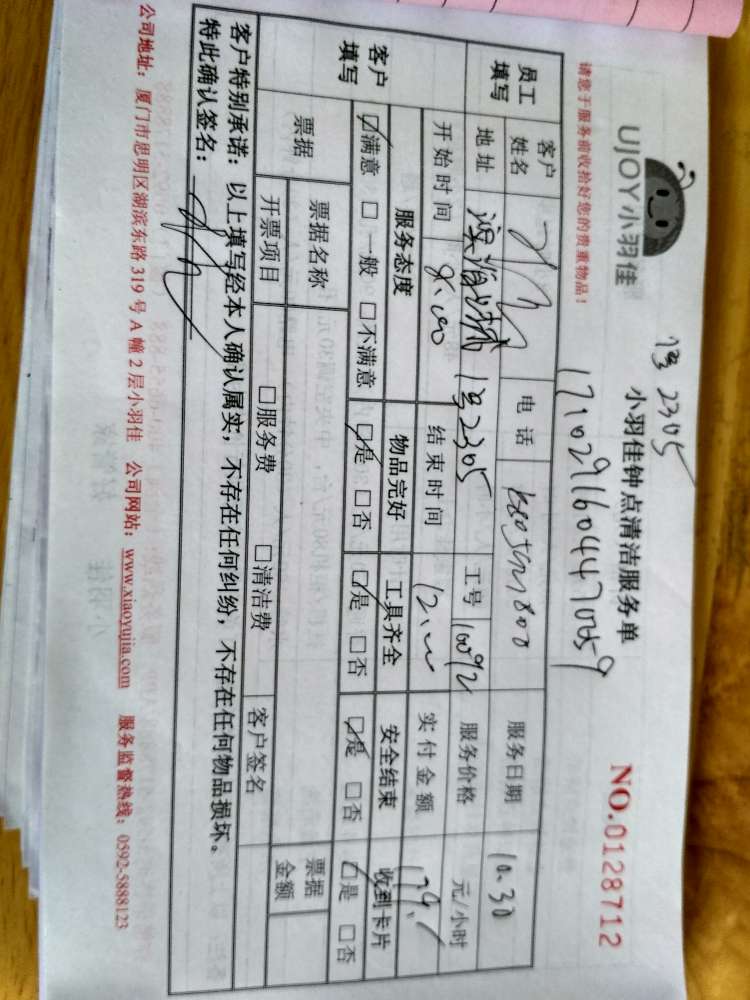 UJOY小羽佳
1号2305
小羽佳钟点清洁服务单
NO.0128712
171029160447059
请您于服务前收拾好您的贵重物品！
员工填写
客户姓名 电话 服务日期 10.30
地址 1号2305 工号 10092 服务价格 元/小时
开始时间 8:00 结束时间 12:00 实付金额
客户填写
服务态度 物品完好 工具齐全 安全结束 收到卡片
☑满意 □一般 □不满意 ☑是 □否 ☑是 □否 ☑是 □否 ☑是 □否
票据 票据名称 □服务费 □清洁费 票据金额
开票项目 客户签名
客户特别承诺：以上填写经本人确认属实，不存在任何纠纷，不存在任何物品损坏。
特此确认签名：
公司地址：厦门市思明区湖滨东路 319 号 A 幢 2 层小羽佳 公司网站：www.xiaoyujia.com 服务监督热线：0592-5888123